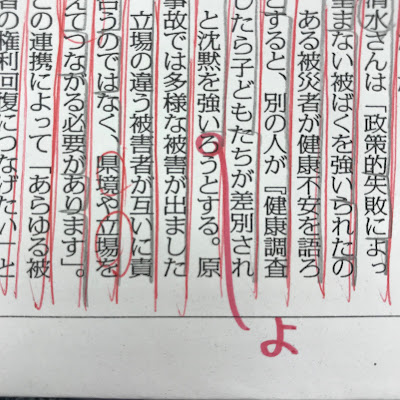 清水さんは「政策的失敗によっ
望まない被ばくを強いられたの
ある被災者が健康不安を語ろ
とすると、別の人が『健康調査
したら子どもたちが差別され
と沈黙を強いろうとする。原
事故では多様な被害が出ました
立場の違う被害者が互いに責
合うのではなく、県境や立場を
えてつながる必要があります」。
この連携によって「あらゆる被
者の権利回復につなげたい」と
よ